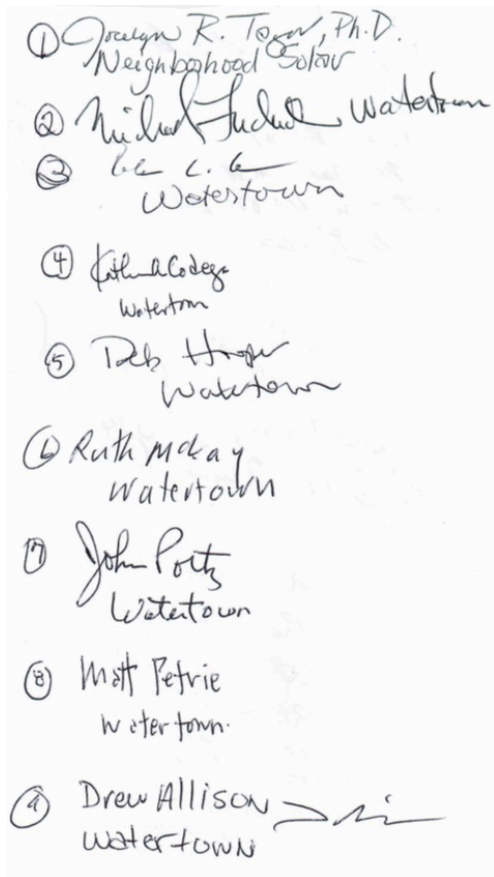 ① Jocelyn R. , Ph.D.
Neighborhood Solar
② Michael Watertown
③ L.
Watertown
④ Codega
Watertown
⑤ Deb
Watertown
⑥ Ruth McKay
Watertown
⑦ John Portz
Watertown
⑧ Matt Petrie
Watertown.
⑨ Drew Allison
Watertown